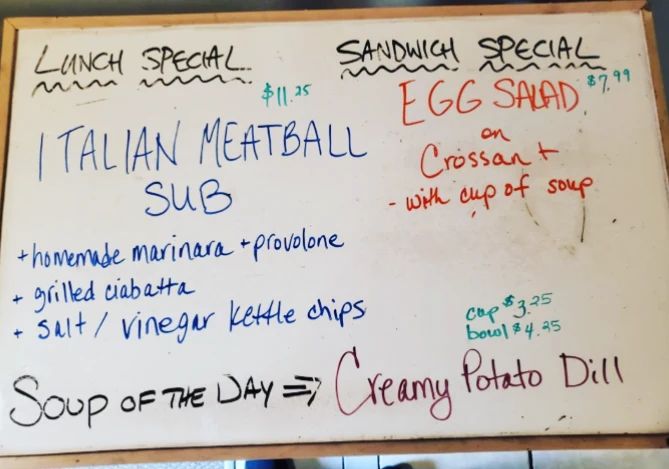 LUNCH SPECIAL
$11.25
ITALIAN MEATBALL
SUB
+ homemade marinara + provolone
+ grilled ciabatta
+ salt / vinegar kettle chips
SANDWICH SPECIAL
$7.99
EGG SALAD
on
Crossant
- with cup of soup
cup $3.25
bowl $4.25
SOUP OF THE DAY => Creamy Potato Dill